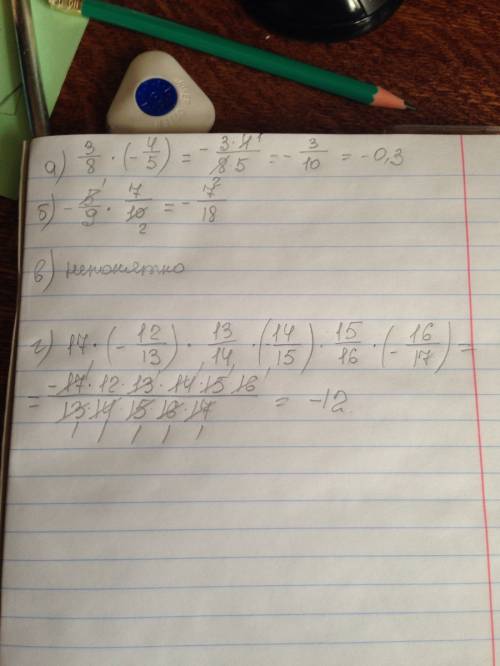 а) 3/8 · (- 4/5) = - 3·4/8 5 = - 3/10 = -0,3
б) - 5/9 · 7/10 = - 7/18
в) непонятно
г) 17 · (- 12/13) · 13/14 · (14/15) · 15/16 · (- 16/17) =
= -17·12·13·14·15·16/13·14·15·16·17 = -12